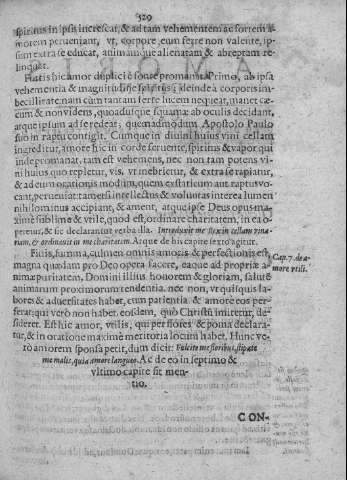 529
spiritus in ipsis increscat, & ad tam vehementem ac fortem a-
morem perueniant, vt, corpore eum ferre non valente, ip-
sum extra se educat, animamque alienatam & abreptam re-
linquat.
Futis hic amor duplici è fonte promanat: Primo, ab ipsa
vehementia & magnitudine spiritus; deinde à corporis im-
becillitate, nam cùm tantam ferre lucem nequeat, manet cæ-
cum & non videns, quoadusque squama ab oculis decidant,
atque ipsum ad se redeat; quemadmodum Apostolo Paulo
suo in raptu contigit. Cumque in diuini huius vini cellam
ingreditur, amore hic in corde feruente, spiritus & vapor qui
inde promanat, tam est vehemens, nec non tam potens vi-
ni huius quo repletur, vis, vt inebrietur, & extra se rapiatur,
& ad eum orationis modum, quem exstaticum aut raptus vo-
cant, perueniat: tamersi intellectus & voluntas interea lumen
nihilominus accipiant, & ament, atque ipse Deus opus ma-
ximè sublime & vtile, quod est, ordinare charitatem, in ea o-
peretur, & sic declarantur verba illa. Introduxit me rex in cellam vina-
riam, & ordinauit in me charitatem. Atque de his capite sexto agitur.
Finis, summa, culmen omnis amoris & perfectionis est,
magna quædam pro Deo opera facere, eaque ad propriæ a-
nimæ puritatem, Domini illius honorem & gloriam, salutem
animarum proximorum tendentia, nec non, vt quisquis la-
bores & aduersitates habet, cum patientia & amore eos per-
ferat: qui verò non habet, eosdem, quò Christũ imitetur, de-
sideret. Est hic amor, vtilis, qui per flores & poma declara-
tur, & in oratione maximè meritoria locum habet. Hunc ve-
rò amorem sponsa petit, dum dicit: Fulcite me floribus, stipate
me malis, quia amore langueo. Ac de eo in septimo &
vltimo capite fit men-
tio.
Cap. 7. de a-
more vtili.
CON-